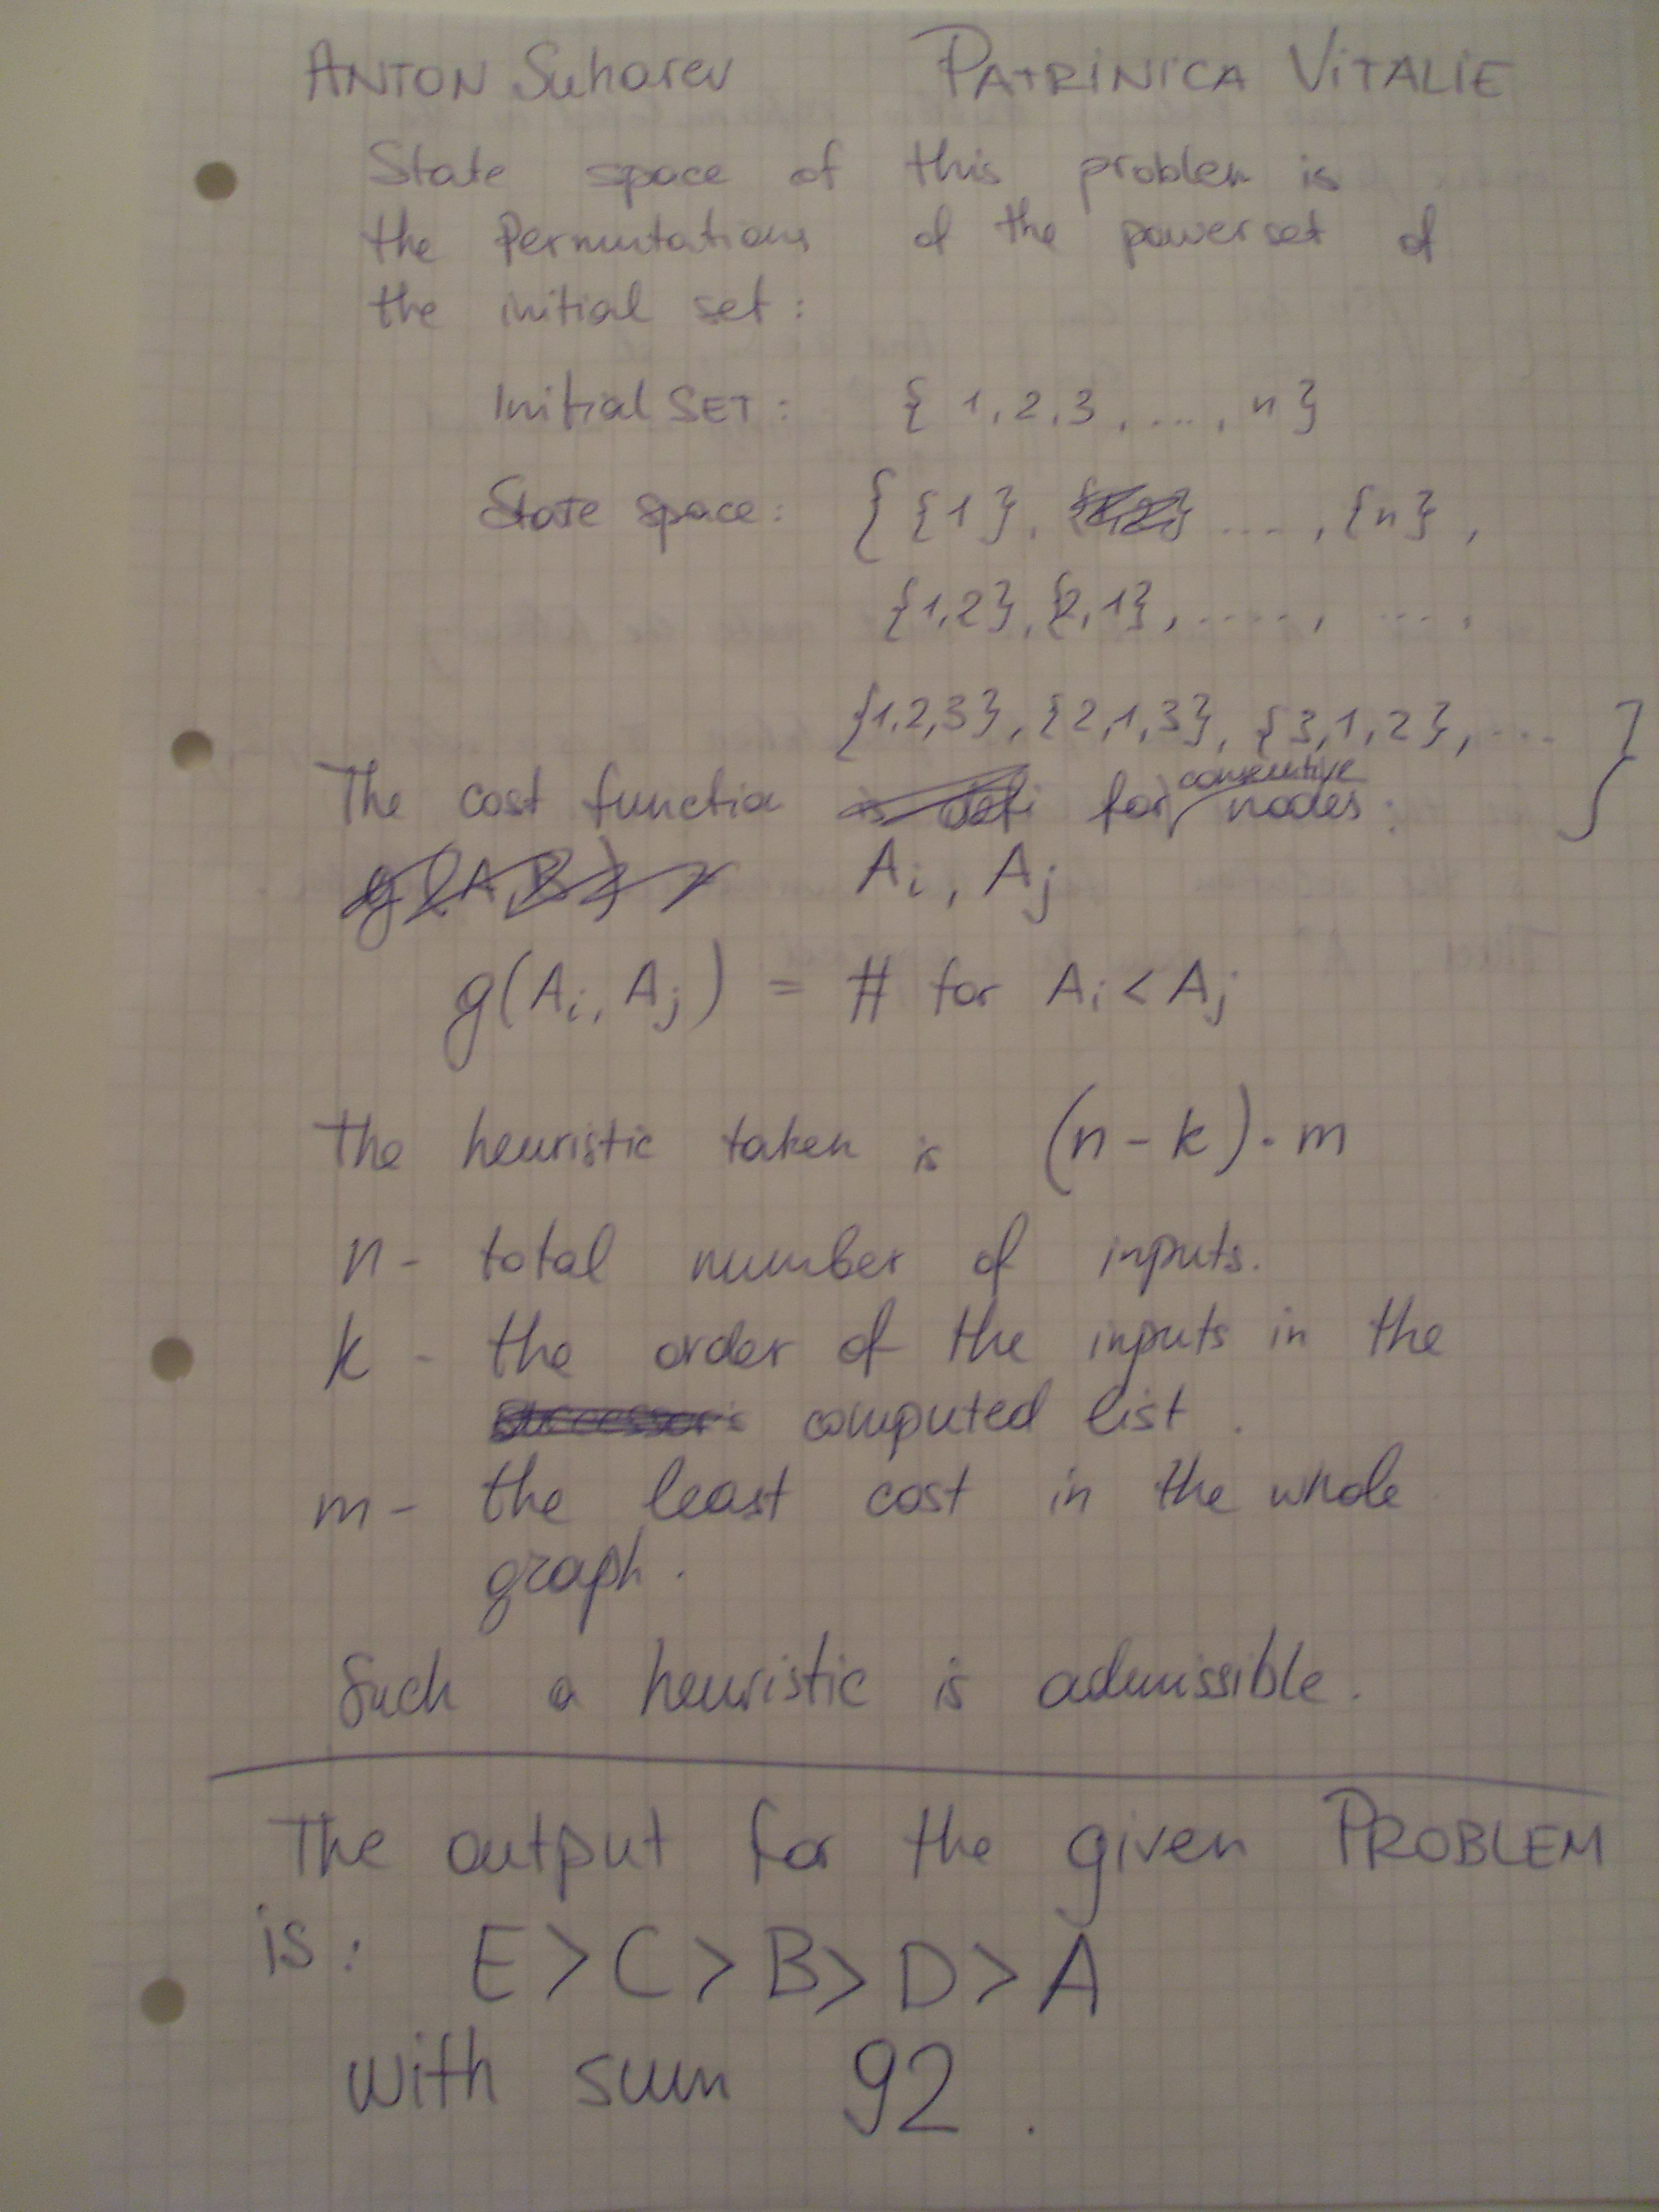 ANTON Suharev PATRINICA VITALIE
State space of this problem is
the Permutations of the powerset of
the initial set:
Initial SET: { 1,2,3, ..., n }
State space: { {1}, ...., {n},
{1,2}, {2,1}, ....., ....,
{1,2,3}, {2,1,3}, {3,1,2}, ... }
The cost functio for consecutive nodes:
g(A,B) Ai, Aj
g(Ai, Aj) = # for Ai < Aj
The heuristic taken is (n - k) · m
n - total number of inputs.
k - the order of the inputs in the
successor's computed list.
m - the least cost in the whole
graph.
Such a heuristic is admissible.
The output for the given PROBLEM
is: E > C > B > D > A
with sum 92.